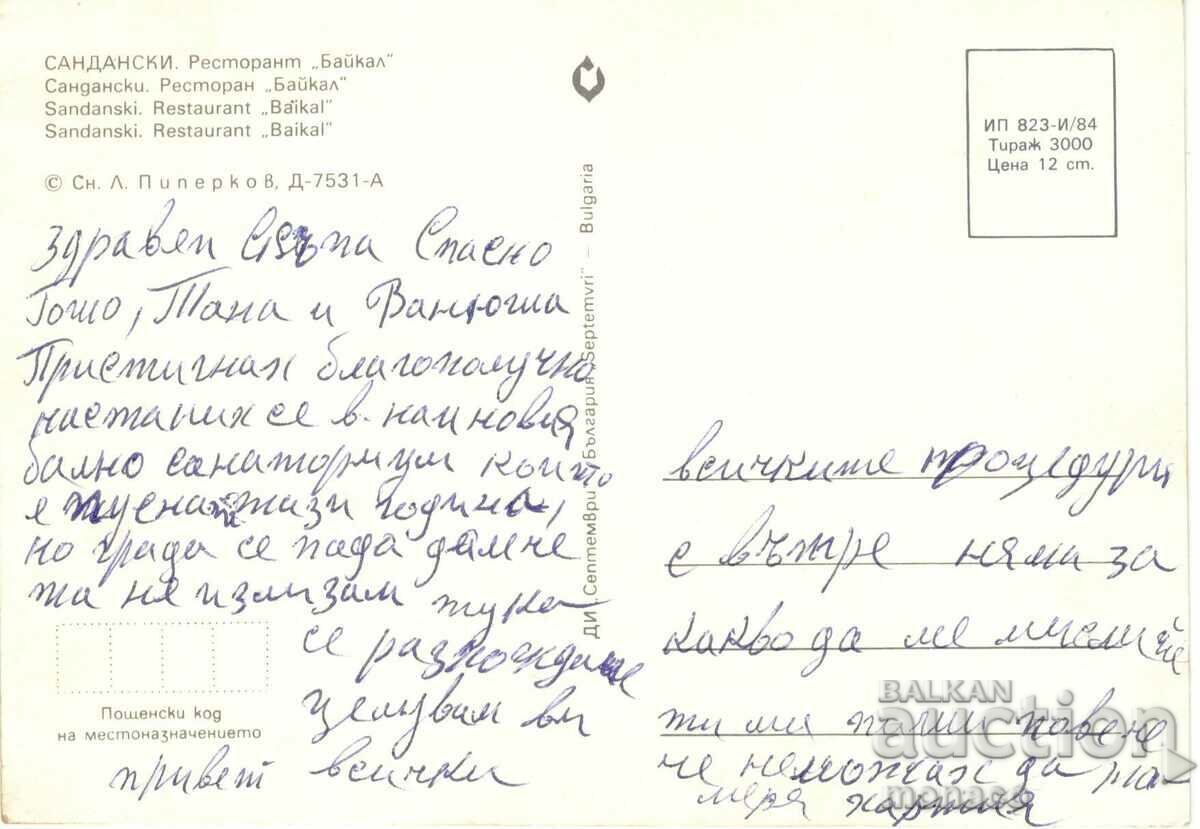 САНДАНСКИ. Ресторант „Байкал"
Сандански. Ресторан „Байкал"
Sandanski. Restaurant „Baïkal"
Sandanski. Restaurant „Baikal"
© Сн. Л. Пиперков, Д-7531-А
здравей Спасно
Гошо, Тана и Ванюша
Пристигнах благополучно
настаних се в най новия
бално санаториум който
е пуснат тази година,
но града се пада далече
та не излизам тука
се разхождаме
целувам ви
привет всички
Пощенски код
на местоназначението
ДИ „Септември" България „Septemvri" – Bulgaria
ИП 823-И/84
Тираж 3000
Цена 12 ст.
всичките процедури
е вътре няма за
какво да ме мислите
ти ми пиши повече
че неможах да на
меря хартия
BALKAN
auction